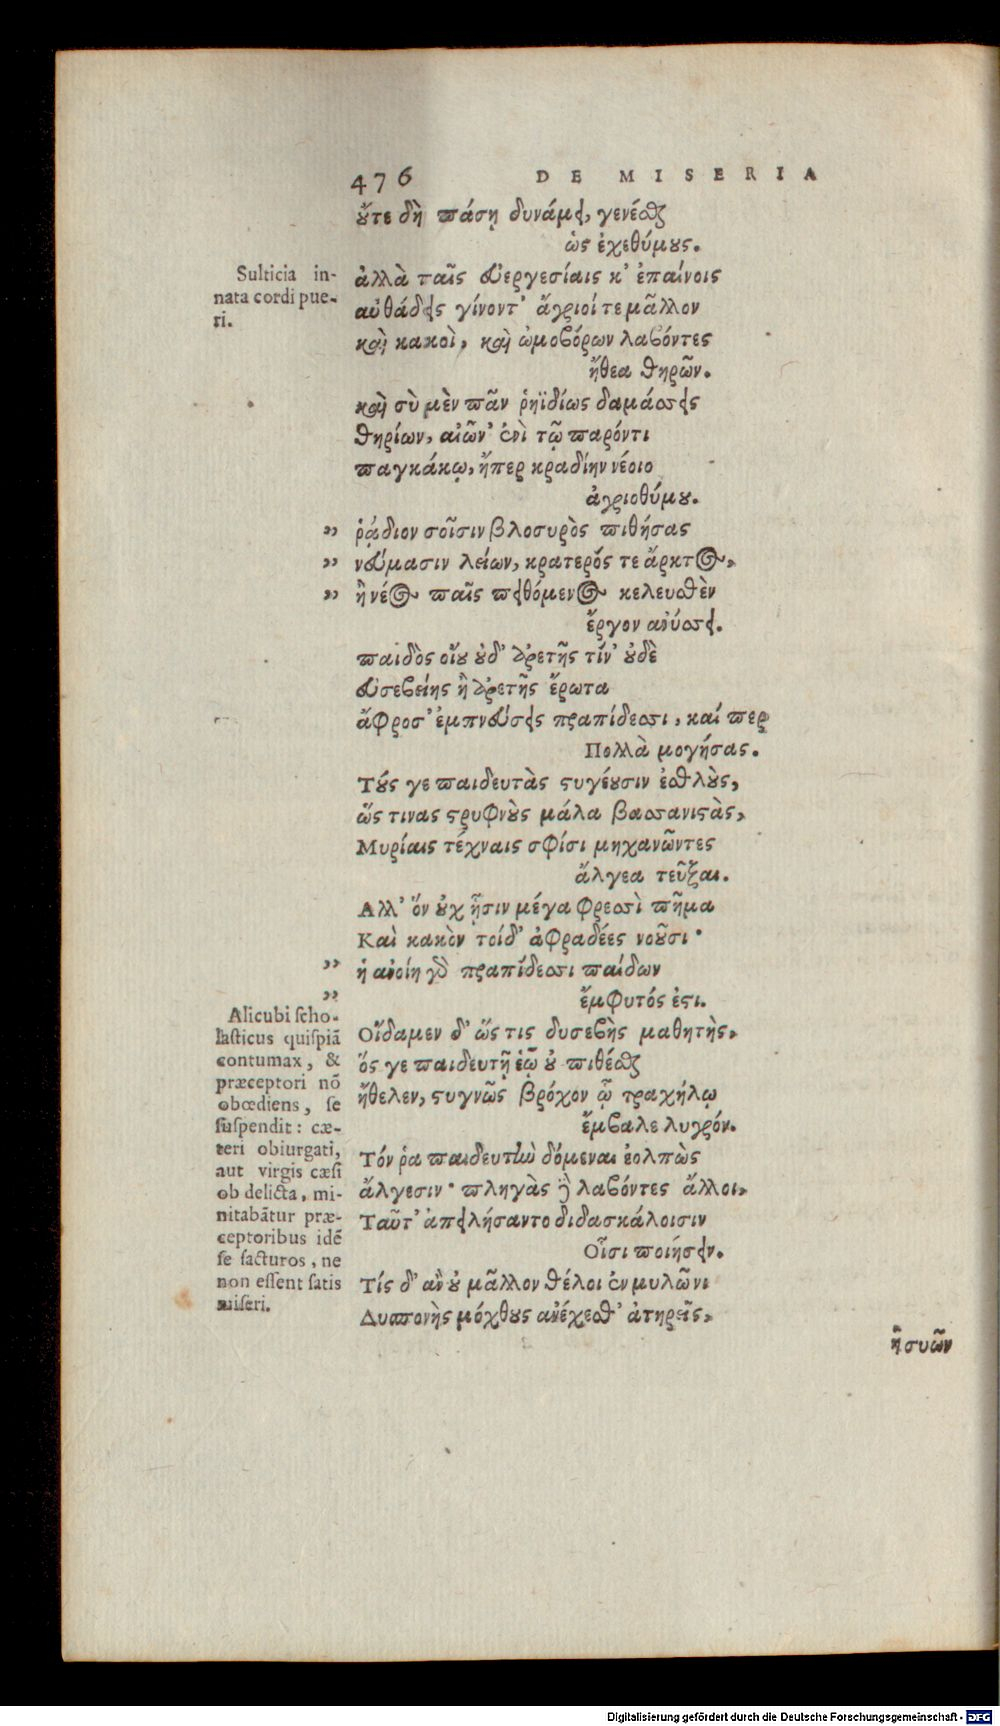 476 DE MISERIA
οὔτε δὴ πάσῃ δυνάμει, γενέσθαι
ὡς ἐχεθύμους.
Sulticia in-
nata cordi pue-
ri.
ἀλλὰ ταῖς εὐεργεσίαις κ' ἐπαίνοις
αὐθάδεις γίνοντ' ἄγριοί τε μᾶλλον
καὶ κακοὶ, καὶ ὠμοβόρων λαβόντες
ἤθεα θηρῶν.
καὶ σὺ μὲν πᾶν ῥηϊδίως δαμάσεις
θηρίων, αἰῶν' ἐνὶ τῷ παρόντι
παγκάκῳ, ἤπερ κραδίην νέοιο
ἀγριοθύμου.
„ ῥᾴδιον σοῖσιν βλοσυρὸς πιθήσας
„ νεύμασιν λείων, κρατερός τε ἄρκτος,
„ ἢ νέος παῖς πειθόμενος κελευσθὲν
ἔργον ἀνύσσει.
παιδὸς οἵου οὐδ' ἀρετῆς τίν' οὐδὲ
εὐσεβείης ἢ ἀρετῆς ἔρωτα
ἄφροσ' ἐμπνεύσεις πραπίδεσσι, καί περ
Πολλὰ μογήσας.
Τούς γε παιδευτὰς στυγέουσιν ἐσθλοὺς,
ὥς τινας στρυφνοὺς μάλα βασανιστὰς,
Μυρίαις τέχναις σφίσι μηχανῶντες
ἄλγεα τεῦξαι.
Αλλ' ὅν οὐχ ᾗσιν μέγα φρεσσὶ πῆμα
Καὶ κακὸν τοίδ' ἀφραδέες νοῦσι·
„ ἡ ἀνοίη γὰρ πραπίδεσσι παίδων
„ ἔμφυτός ἐστι.
Alicubi scho-
lasticus quispiã
contumax, &
præceptori nõ
obœdiens, se
suspendit: cæ-
teri obiurgati,
aut virgis cæsi
ob delicta, mi-
nitabãtur præ-
ceptoribus idẽ
se facturos, ne
non essent satis
miseri.
Οἴδαμεν δ' ὥς τις δυσεβὴς μαθητὴς,
ὅς γε παιδευτῇ ἑῷ οὐ πιθέσθαι
ἤθελεν, στυγνῶς βρόχον ᾧ τραχήλῳ
ἔμβαλε λυγρόν.
Τόν ῥα παιδευτὴν δόμεναι ἐολπὼς
ἄλγεσιν· πληγὰς ἢ λαβόντες ἄλλοι,
Ταῦτ' ἀπειλήσαντο διδασκάλοισιν
Οἷσι ποιήσειν.
Τίς δ' ἂν οὐ μᾶλλον θέλοι ἐν μυλῶνι
Δυσπονὴς μόχθους ἀνέχεσθ' ἀτηρεῖς,
ἢ συῶν
Digitalisierung gefördert durch die Deutsche Forschungsgemeinschaft - DFG